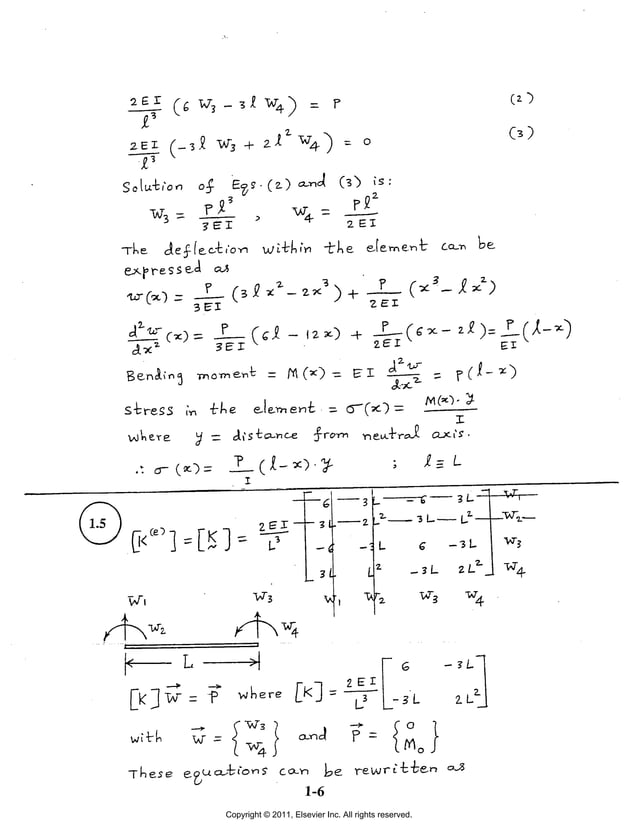 2EI/l³ (6 W₃ − 3l W₄) = P (2)
2EI/l³ (−3l W₃ + 2l² W₄) = 0 (3)
Solution of Eqs.(2) and (3) is:
W₃ = Pl³/3EI , W₄ = Pl²/2EI
The deflection within the element can be
expressed as
w(x) = P/3EI (3lx² − 2x³) + P/2EI (x³ − lx²)
d²w/dx² (x) = P/3EI (6l − 12x) + P/2EI (6x − 2l) = P/EI (l−x)
Bending moment = M(x) = EI d²w/dx² = P(l−x)
Stress in the element = σ(x) = M(x)·y/I
where y = distance from neutral axis.
∴ σ(x) = P/I (l−x)·y ; l ≡ L
1.5
[K⁽ᵉ⁾] = [K] = 2EI/L³
6 3L −6 3L W₁
3L 2L² −3L L² W₂
−6 −3L 6 −3L W₃
3L L² −3L 2L² W₄
W₁ W₂ W₃ W₄
W₁ W₃
W₂ W₄
L
[K] W⃗ = P⃗ where [K] = 2EI/L³ [6 −3L
−3L 2L²]
with W⃗ = {W₃ W₄} and P⃗ = {0 M₀}
These equations can be rewritten as
1-6
Copyright © 2011, Elsevier Inc. All rights reserved.